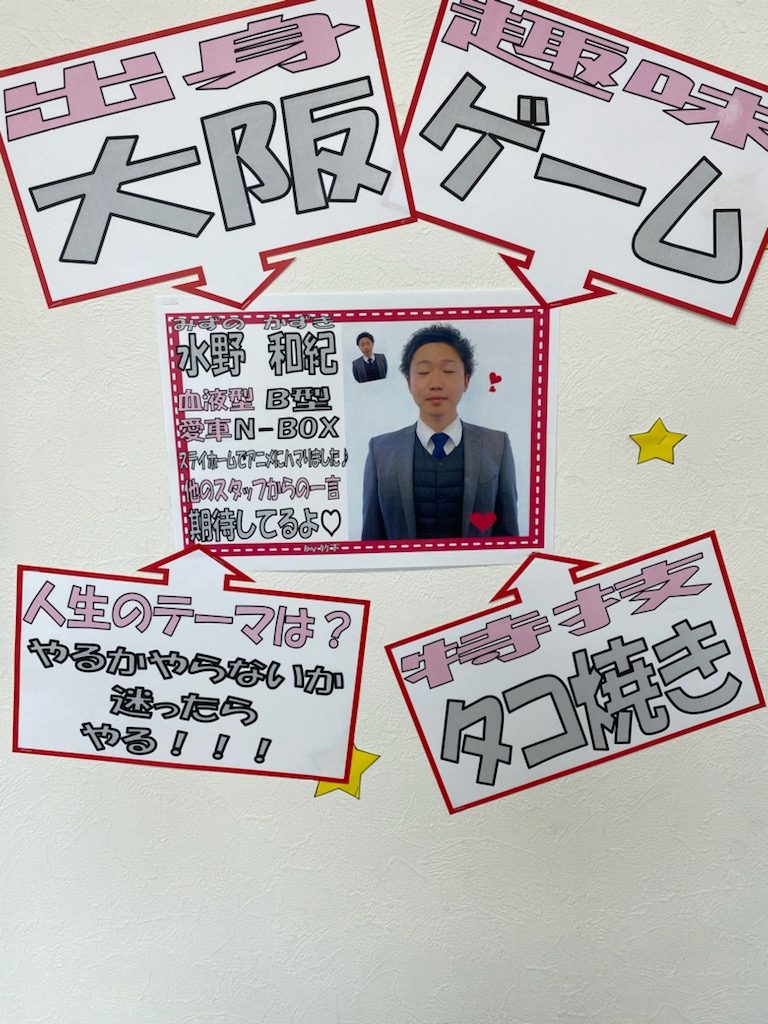 出身
大阪
趣味
ゲーム
みずの かずき
水野 和紀
血液型 B型
愛車N-BOX
ステイホームでアニメにハマりました♪
他のスタッフからの一言
期待してるよ♡
by 竹下
人生のテーマは？
やるかやらないか
迷ったら
やる！！！
特技
タコ焼き